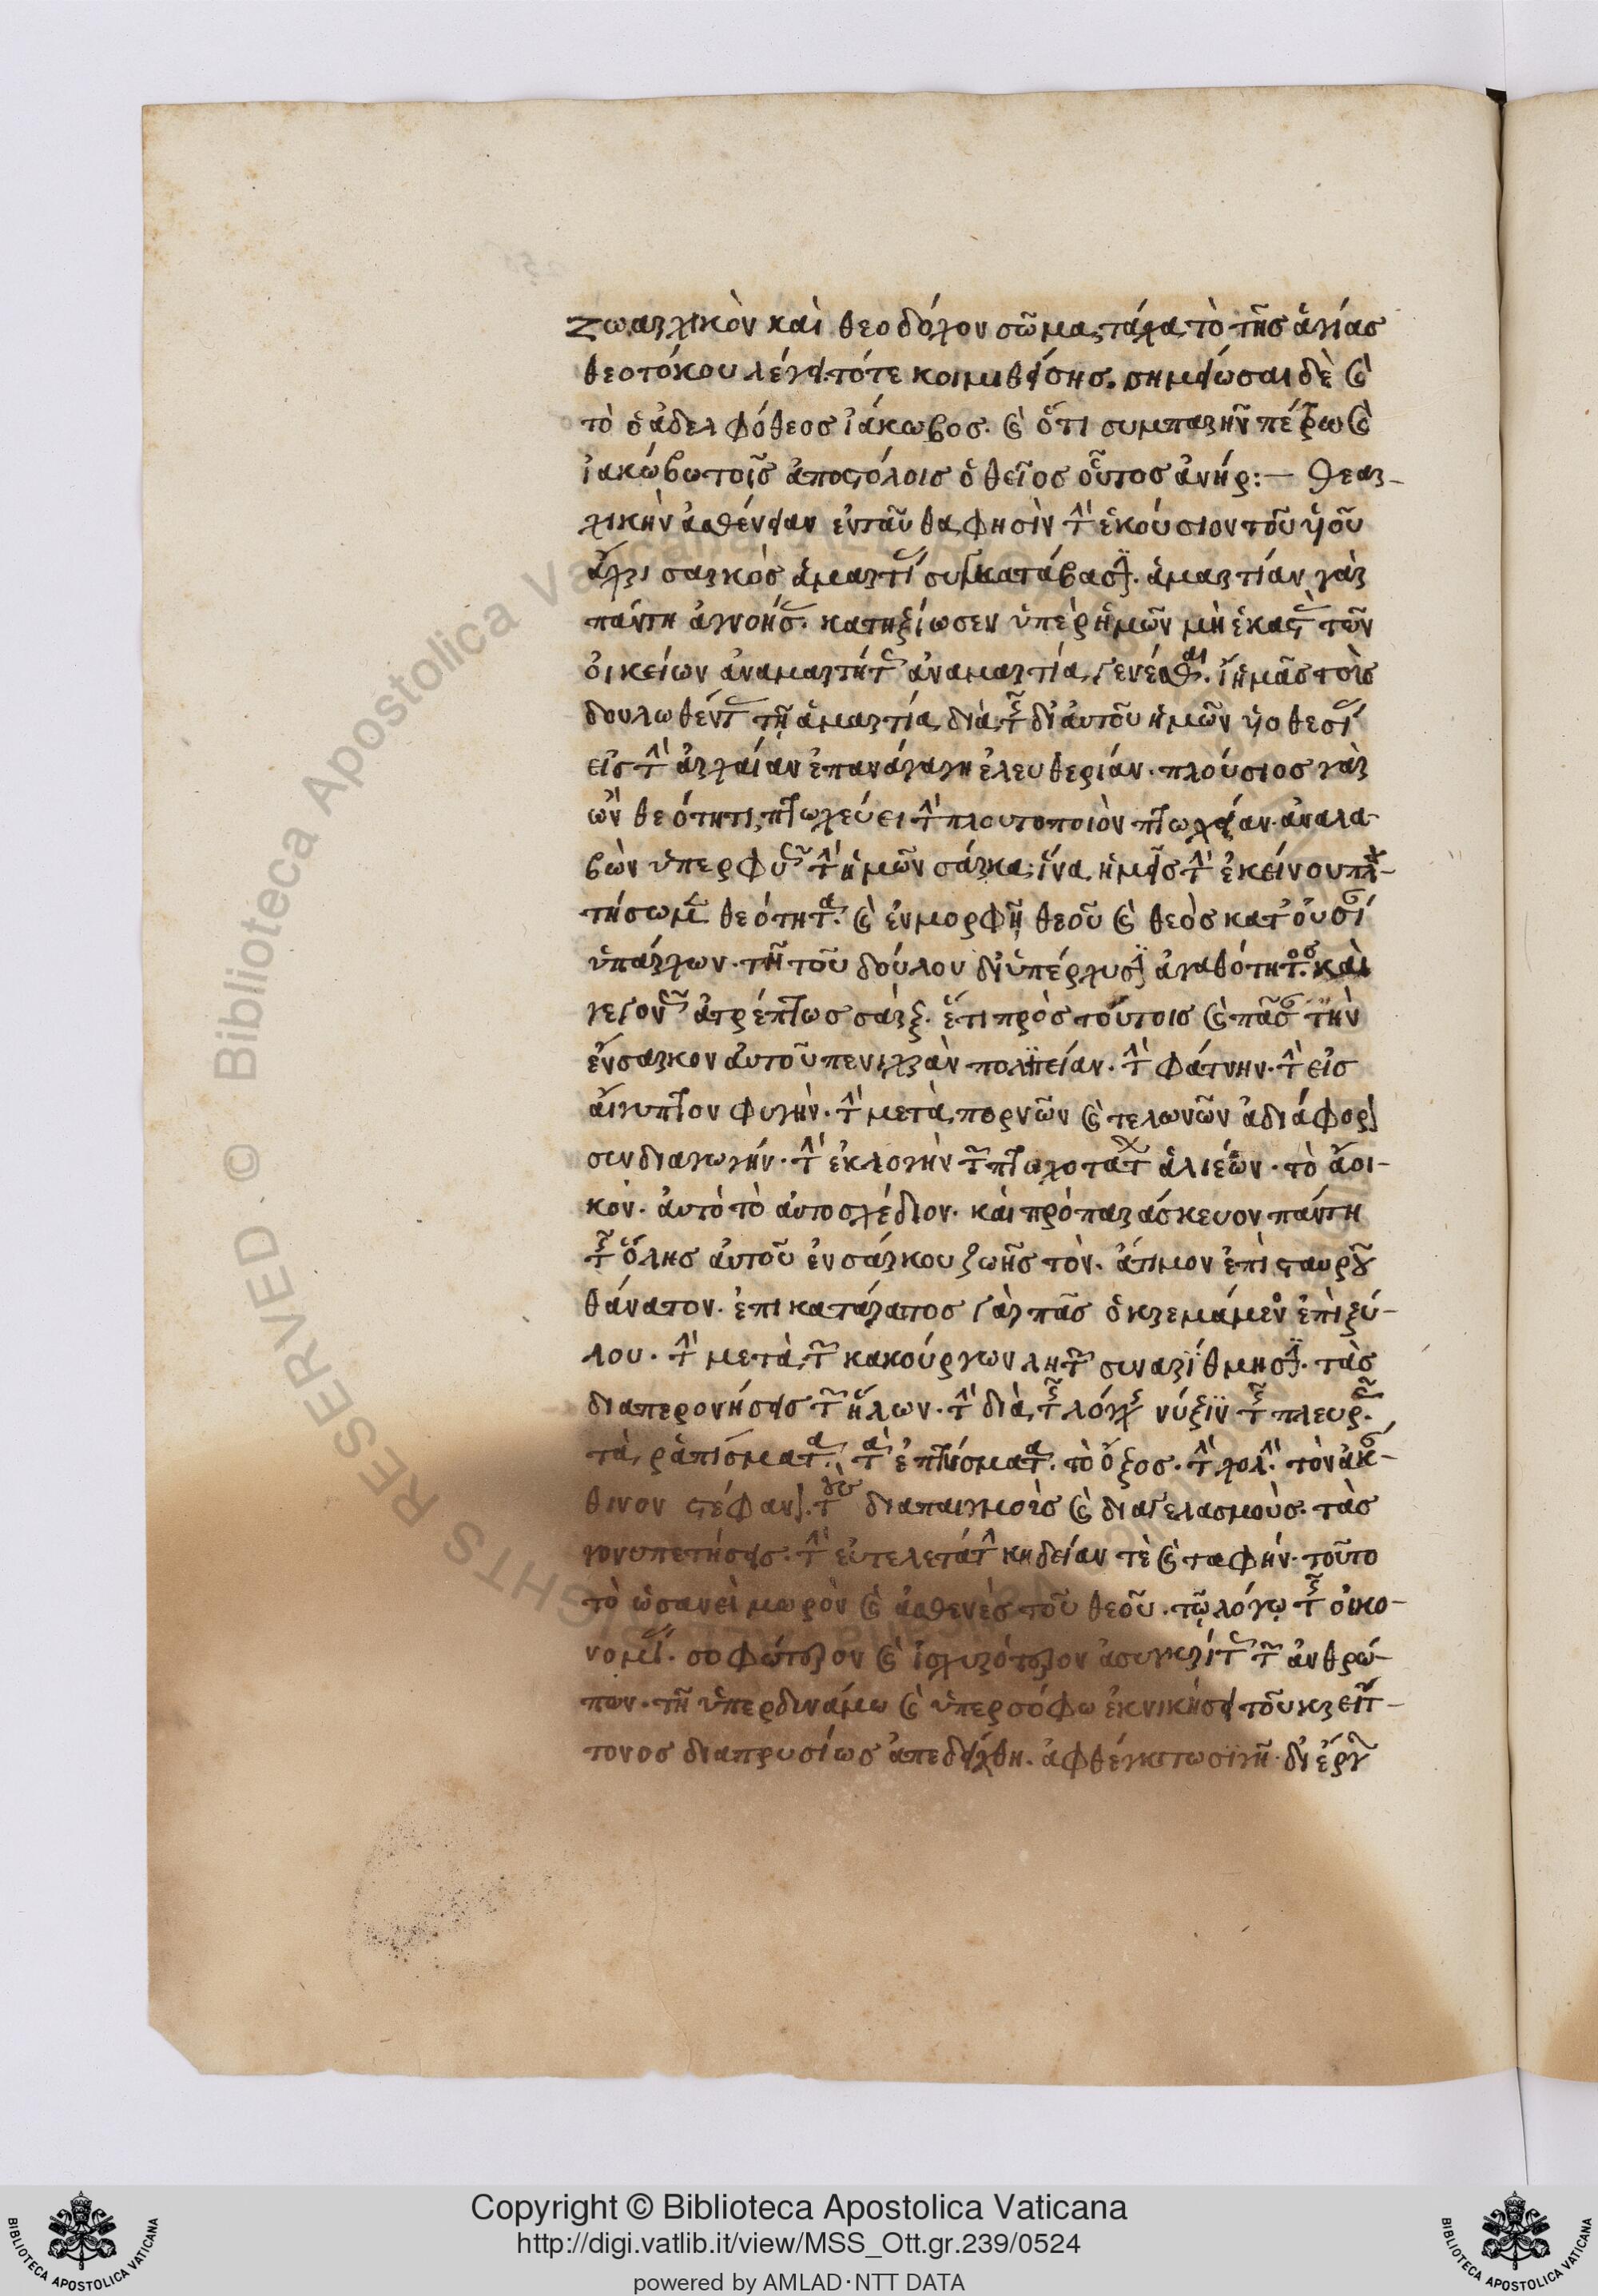 Ζωαρχικὸν καὶ θεοδόχον σῶμα, τάχα τὸ τῆς ἁγίας
θεοτόκου λέγει τότε κοιμηθείσης. σημείωσαι δὲ καὶ
τὸ ὁ ἀδελφόθεος ἰάκωβος. καὶ ὅτι συμπαρῆν πέτρω καὶ
ἰακώβω τοῖς ἀποστόλοις ὁ θεῖος οὗτος ἀνήρ:— Θεαρ-
χικὴν ἀσθένειαν ἐνταῦθα φησὶν τὴν ἑκούσιον τοῦ ὑοῦ
ἄχρι σαρκὸς ἁμαρτί συγκατάβασιν. ἁμαρτίαν γὰρ
πάντη ἀγνοήσ. κατηξίωσεν ὑπὲρ ἡμῶν μὴ ἑκαστ τῶν
οἰκείων ἀναμαρτήτ ἀναμαρτία γενέσθαι. ἵν ἡμᾶς τοὶς
δουλωθέντ τῆ ἁμαρτία, διὰ τῆς δι αὐτοῦ ἡμῶν ὑοθεσί
εἰς τὴν ἀρχαίαν ἐπανάγαγη ἐλευθερίαν. πλούσιος γὰρ
ὢν θεότητι, πτωχεύει τὴν πλουτοποιὸν πτωχείαν. ἀναλα-
βὼν ὑπερφυῶς τὴν ἡμῶν σάρκα, ἵνα ἡμεῖς τὴν ἐκείνου πλου-
τήσωμεν θεότητα. καὶ ἐν μορφῆ θεοῦ καὶ θεὸς κατ οὐσί
ὑπάρχων. τὴν τοῦ δούλου δι ὑπέρχυσιν ἀγαθότητος. καὶ
γεγονὼς ἀτρέπτως σὰρξ. ἔτι πρὸς τούτοις καὶ πᾶσαν τὴν
ἔνσαρκον αὐτοῦ πενιχρὰν πολιτείαν. τὴν φάτνην. τὴν εἰς
αἴγυπτον φυγὴν. τὴν μετὰ πορνῶν καὶ τελωνῶν ἀδιάφορον
συνδιαγωγήν. τὴν ἐκλογὴν τῶν πτωχοτάτων ἁλιέων. τὸ ἄοι-
κον. αὐτὸ τὸ αὐτοσχέδιον. καὶ πρὸ παρασκευον πάντη
τῆς ὅλης αὐτοῦ ἐνσάρκου ζωῆς τὸν. ἄτιμον ἐπὶ σταυροῦ
θάνατον. ἐπικατάρατος γὰρ πᾶς ὁ κρεμάμενος ἐπὶ ξύ-
λου. τὴν μετὰ τῶν κακούργων ληστῶν συναρίθμησιν. τὰς
διαπερονήσεις τῶν ἥλων. τὴν διὰ τῆς λόγχης νύξϊν τῆς πλευρᾶς.
τὰ ῥαπίσματα. τὰ ἐπτύσματα. τὸ ὄξος. τὴν χολὴν. τὸν ἀκάν-
θινον στέφανον. τοὺς διαπαιγμοὶς καὶ διαγελασμοὺς. τὰς
γονυπετήσεις. τὴν εὐτελετάτην κηδείαν τὲ καὶ ταφήν. τοῦτο
τὸ ὡσανεὶ μωρὸν καὶ ἀσθενὲς τοῦ θεοῦ. τῷ λόγῳ τῆς οἰκο-
νομί. σοφώτερον καὶ ἰσχυρότερον ἀσυγκρίτ τῶν ἀνθρώ-
πων. τῆ ὑπερδυνάμω καὶ ὑπερσόφω ἐκνικήσει τοῦ κρείτ-
τονος διαπρυσίως ἀπεδείχθη. ἀφθέγκτω σιγῆ. δι ἔργων
© Biblioteca Apostolica Vaticana
RIGHTS RESERVED
Copyright © Biblioteca Apostolica Vaticana
http://digi.vatlib.it/view/MSS_Ott.gr.239/0524
powered by AMLAD·NTT DATA
BIBLIOTECA APOSTOLICA VATICANA
BIBLIOTECA APOSTOLICA VATICANA